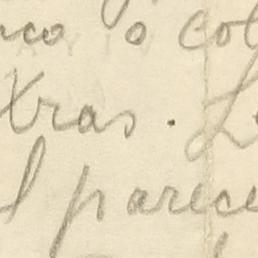 nco o col
Xras. L
l parece